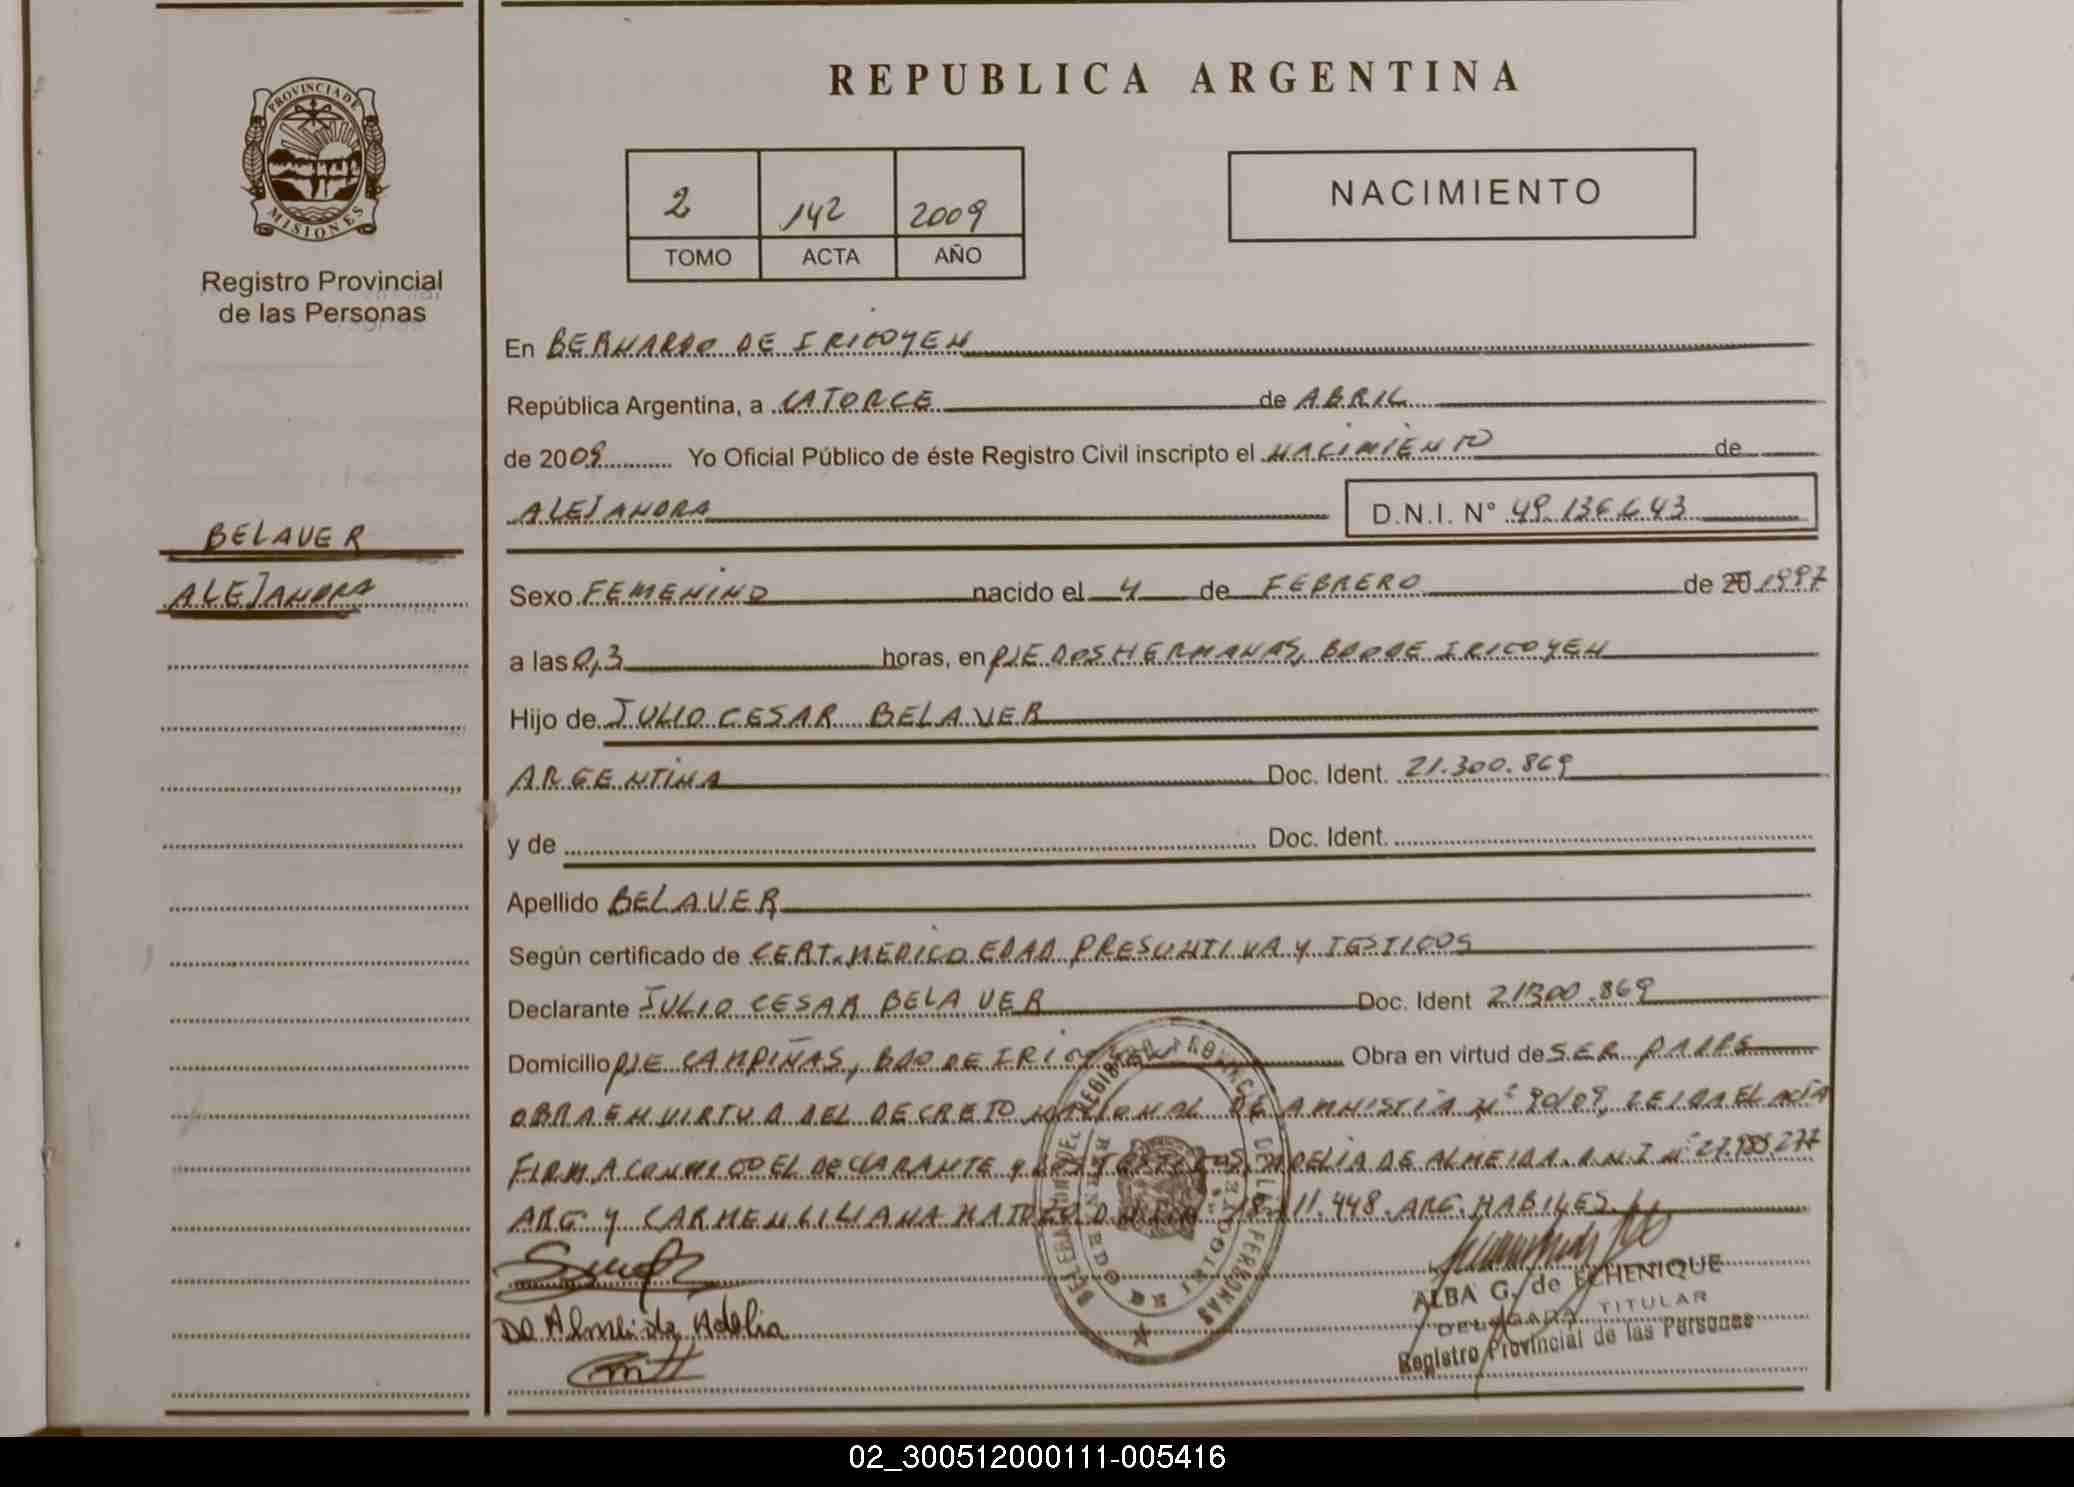 REPUBLICA ARGENTINA
PROVINCIA DE
MISIONES
Registro Provincial
de las Personas
2 142 2009
TOMO ACTA AÑO
NACIMIENTO
En BERNARDO DE IRIGOYEN
República Argentina, a CATORCE de ABRIL
de 2009 Yo Oficial Público de éste Registro Civil inscripto el NACIMIENTO de
ALEJANDRA D.N.I. N° 49.136.643
BELAVER
ALEJANDRA
Sexo FEMENINO nacido el 4 de FEBRERO de 20 1997
a las 0,3 horas, en PJE DOS HERMANAS, BDO DE IRIGOYEN
Hijo de JULIO CESAR BELAVER
ARGENTINA Doc. Ident. 21.300.869
y de Doc. Ident.
Apellido BELAVER
Según certificado de CERT. MEDICO EDAD PRESUNTIVA Y TESTIGOS
Declarante JULIO CESAR BELAVER Doc. Ident 21300.869
Domicilio PJE CAMPIÑAS, BDO DE IRIGOYEN Obra en virtud de SER PADRE
OBRA EN VIRTUD DEL DECRETO NACIONAL DE AMNISTIA N° 90/09, LEIDA EL ACTA
FIRMA CONMIGO EL DECLARANTE Y LOS TESTIGOS ADELIA DE ALMEIDA D.N.I N°
ARG Y CARMEN LILIANA 448. ARG. HABILES
De Almeida Adelia
ALBA G. de ECHENIQUE
DELEGADA TITULAR
Registro Provincial de las Personas
02_300512000111-005416